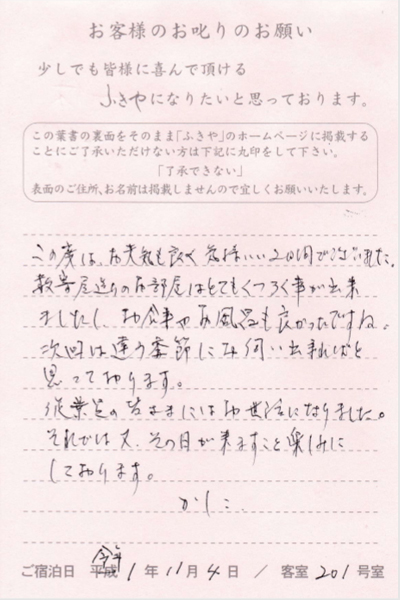 お客様のお叱りのお願い
少しでも皆様に喜んで頂ける
ふきやになりたいと思っております。
この葉書の裏面をそのまま「ふきや」のホームページに掲載する
ことにご了承いただけない方は下記に丸印をして下さい。
「了承できない」
表面のご住所、お名前は掲載しませんので宜しくお願いいたします。
この度は、お天気も良く気持いい2日間でございました。
数寄屋造りのお部屋はとてもくつろぐ事が出来
ましたし、お食事やお風呂も良かったですね。
次回は違う季節にお伺い出来ればと
思っております。
従業員の皆さまにはお世話になりました。
それでは又、その日が来ますこと楽しみに
しております。
かしこ
ご宿泊日 平成 令和 1年 11月 4日 / 客室 201 号室